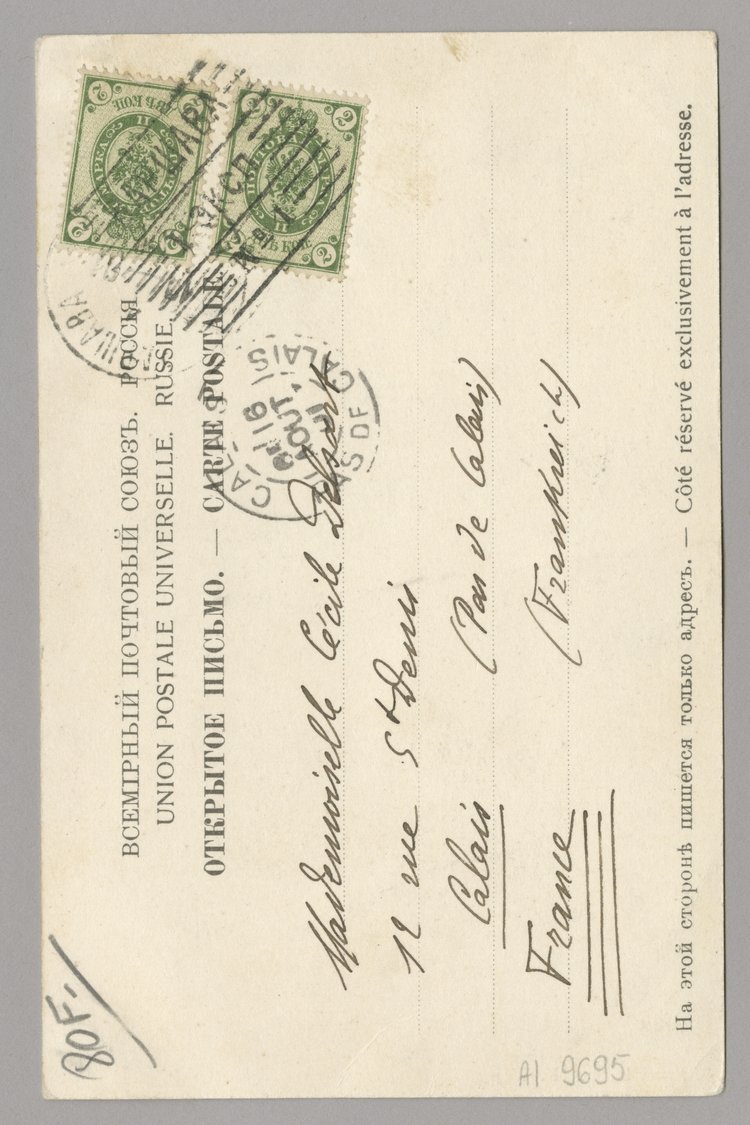 ВСЕМІРНЫЙ ПОЧТОВЫЙ СОЮЗЪ. РОССІЯ.
UNION POSTALE UNIVERSELLE. RUSSIE.
ОТКРЫТОЕ ПИСЬМО. — CARTE POSTALE.
Mademoiselle Cécile Delsart
12 rue St Denis
Calais (Pas de Calais)
France (Frankreich)
На этой сторонѣ пишется только адресъ. — Côté réservé exclusivement à l'adresse.
2 2
МАРКА
2 2
CALAIS
16
AOUT
PAS DE CALAIS
ВАРШАВА
№ 1
80F.-
AI 9695